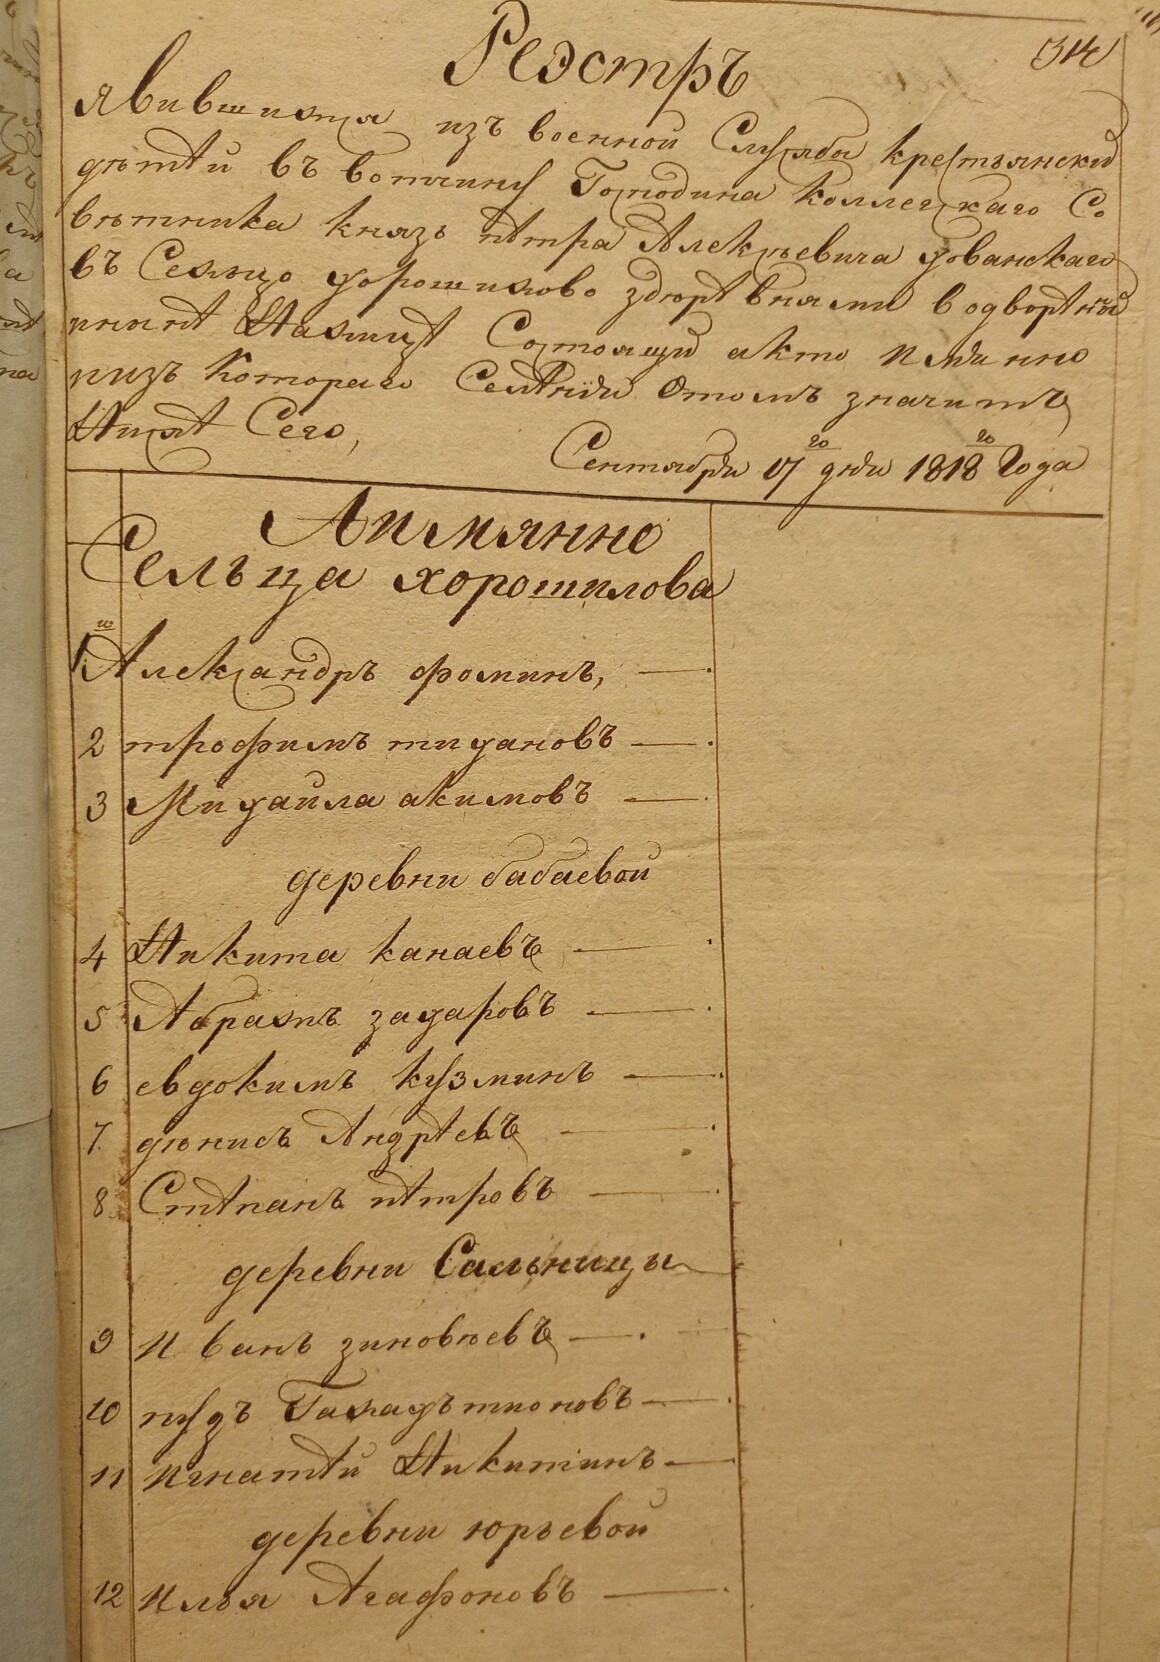 314
Реэстръ
Явившихся изъ военной Службы крестьянски
дѣтей въ вотчину Господина Коллежскаго Со
вѣтника князь петра Алексѣевича хованскаго
въ Сельцо хорошилово з деревнями в одворени
Состоящи а кто имянно
и изъ Котораго Селения о томъ значитъ
Ниже Сего,
Сентября 17 го дня 1818 го Года
А имянно
Сельца хорошилова
1 Александръ фоминъ,
2 трофимъ тихановъ
3 Михайла акимовъ
деревни бабаевой
4 Никита канаевъ
5 Абрамъ захаровъ
6 евдокимъ кузминъ
7 денисъ Андреевъ
8 Степанъ петровъ
деревни Сальницы
9 Иванъ зиновьевъ
10
11 Игнатей Никитинъ
деревни юрьевой
12 Илья Агафоновъ